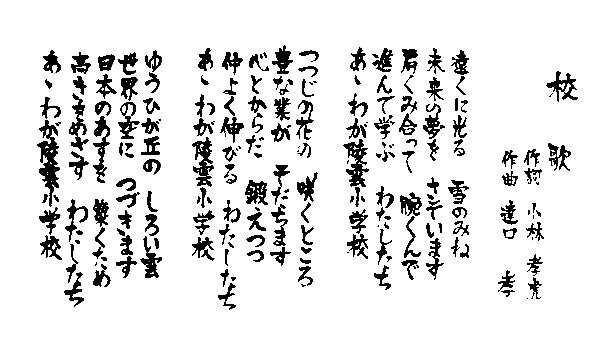 校歌
作詞 小林 孝虎
作曲 達口 孝
遠くに光る 雪のみね
未来の夢を さそいます
君くみ合って 腕くんで
進んで学ぶ わたしたち
あゝわが陵雲小学校
つつじの花の 咲くところ
豊な業が そだちます
心とからだ 鍛えつつ
仲よく伸びる わたしたち
あゝわが陵雲小学校
ゆうひが丘の しろい雲
世界の空に つづきます
日本のあすを 築くため
高きをめざす わたしたち
あゝわが陵雲小学校